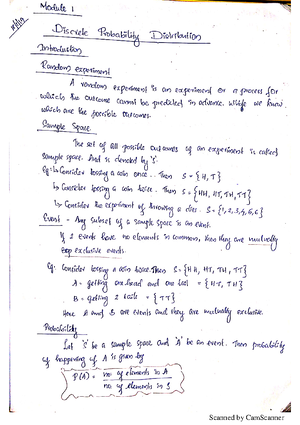 Module 1
Discrete Probability Distribution
Introduction
Random experiment
A random experiment is an experiment or a process for
which the outcome cannot be predicted in advance. While we know
which are the possible outcomes.
Sample Space
The set of all possible outcomes of an experiment is called
sample space. And is denoted by 'S'.
Eg:- ↳ Consider tossing a coin once.. Then S = {H, T}
↳ Consider tossing a coin twice. Then S = {HH, HT, TH, TT}
↳ Consider the experiment of throwing a dice. S = {1, 2, 3, 4, 5, 6}
Event - Any subset of a sample space is an event.
If 2 events have no elements in common, then they are mutually
exclusive events.
Eg: Consider tossing a coin twice. Then S = {HH, HT, TH, TT}
A = getting one head and one tail = {HT, TH}
B = getting 2 tails = {TT}
Here A and B are events and they are mutually exclusive.
Probability
Let 'S' be a sample space and 'A' be an event. Then probability
of happening of A is given by
P(A) = no of elements in A
no of elements in S
Scanned by CamScanner